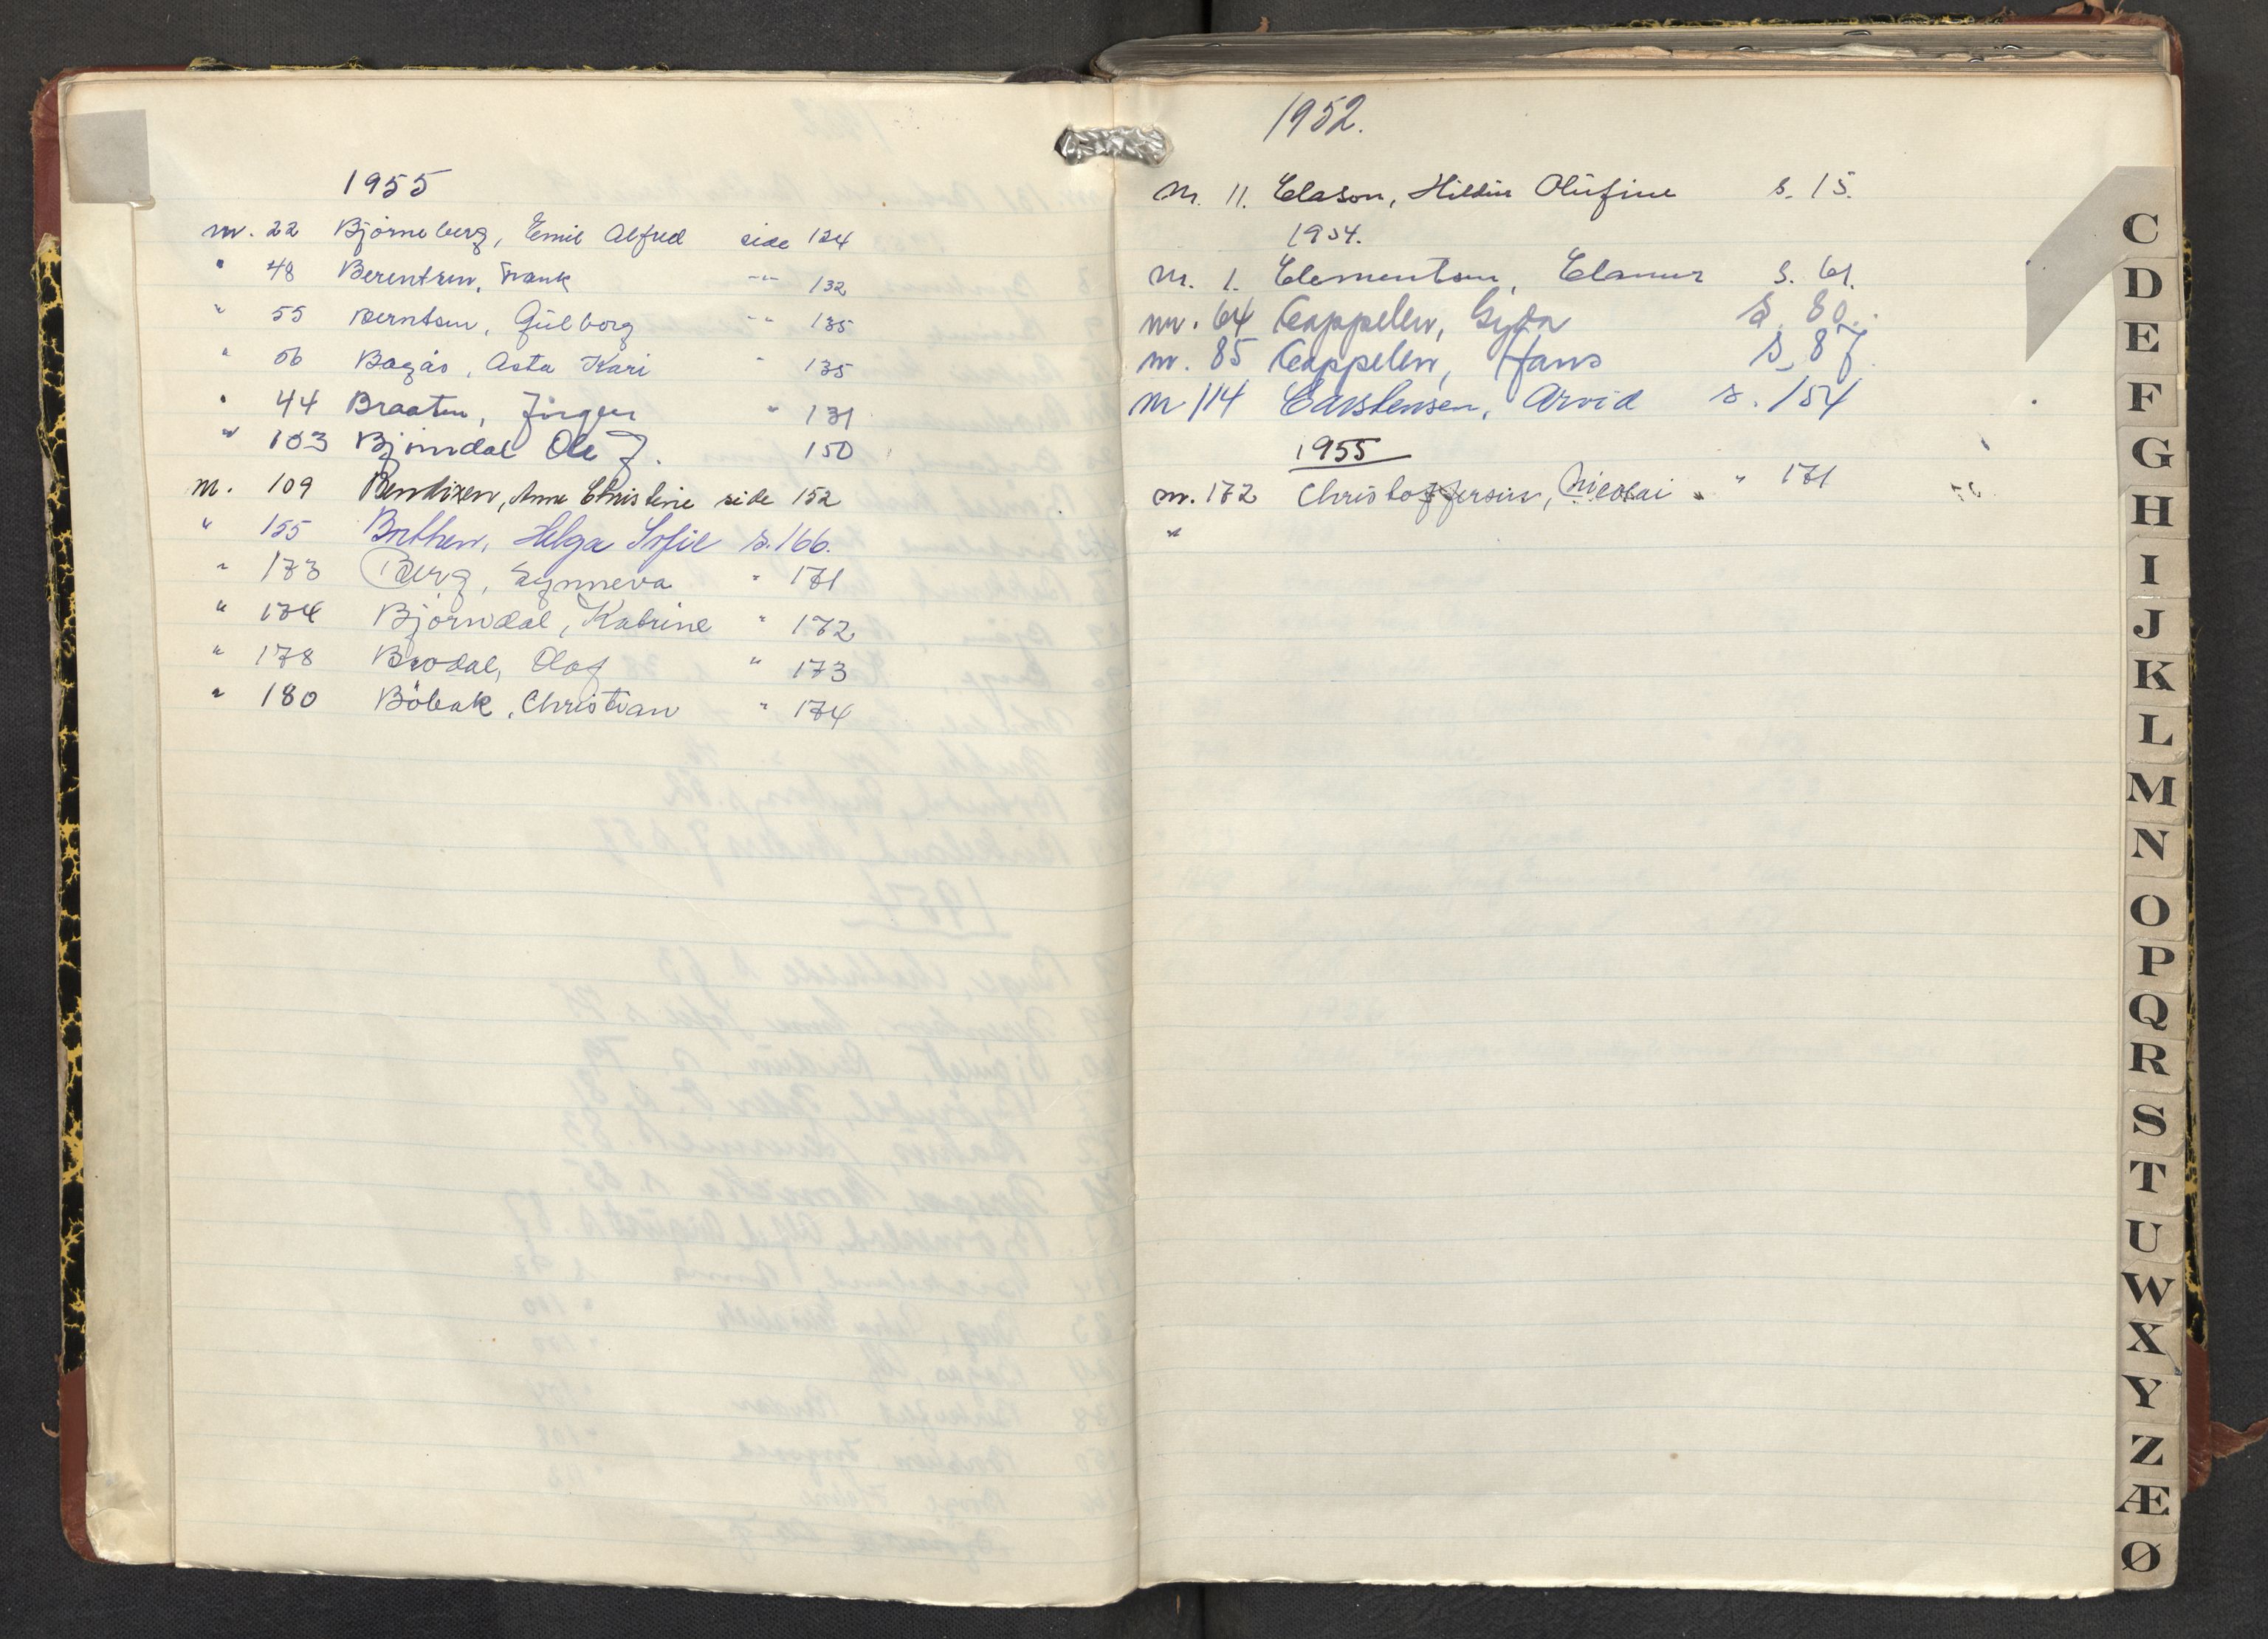 1955
nr. 22 Bjørneberg, Emil Alfred side 124
" 48 Berentsen, Frank -"- 132
" 55 Berntsen, Gülborg -"- 135
" 56 Bagås, Asta Kari " 135
" 44 Braaten, Jørgen " 131
" 103 Bjørndal Ole J. 150
nr. 109 Bendixen, Anne Christine side 152
" 155 Brethen, Helga Sofie s. 166.
" 173 Berg, Synneva " 171
" 174 Bjørndal, Katrine " 172
" 178 Brodal, Olaf " 173
" 180 Böbak, Christian " 174
1952.
nr. 11. Clason, Olüfine s. 15.
1954.
nr. 1. Clementsen, s. 61.
nr. 64 Cappelen, Gyda s. 80.
nr. 85 Cappelen, Hans s. 87
nr 114 Carstensen, Arvid s. 154
1955
nr. 172 Christoffersen, Nicolai " 171
"
C
D
E
F
G
H
I
J
K
L
M
N
O
P
Q
R
S
T
U
W
X
Y
Z
Æ
Ø